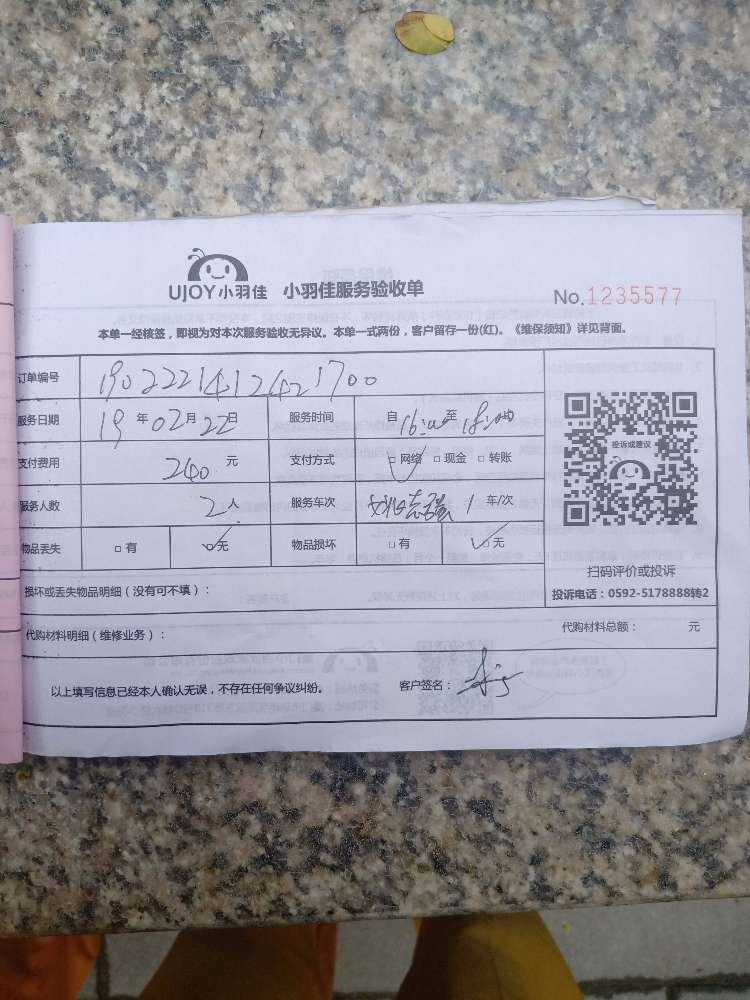 UJOY小羽佳 小羽佳服务验收单
No.1235577
本单一经核签，即视为对本次服务验收无异议。本单一式两份，客户留存一份(红)。《维保须知》详见背面。
订单编号 1902221412421700
服务日期 19 年 02 月 22 日 服务时间 自 16:00 至 18:00 时
投诉或建议
支付费用 240 元 支付方式 □ 网络 □ 现金 □ 转账
服务人数 2 人 服务车次 1 车/次
物品丢失 □ 有 □ 无 物品损坏 □ 有 □ 无
扫码评价或投诉
投诉电话：0592-5178888转2
损坏或丢失物品明细（没有可不填）：
代购材料明细（维修业务）： 代购材料总额： 元
以上填写信息已经本人确认无误，不存在任何争议纠纷。 客户签名：